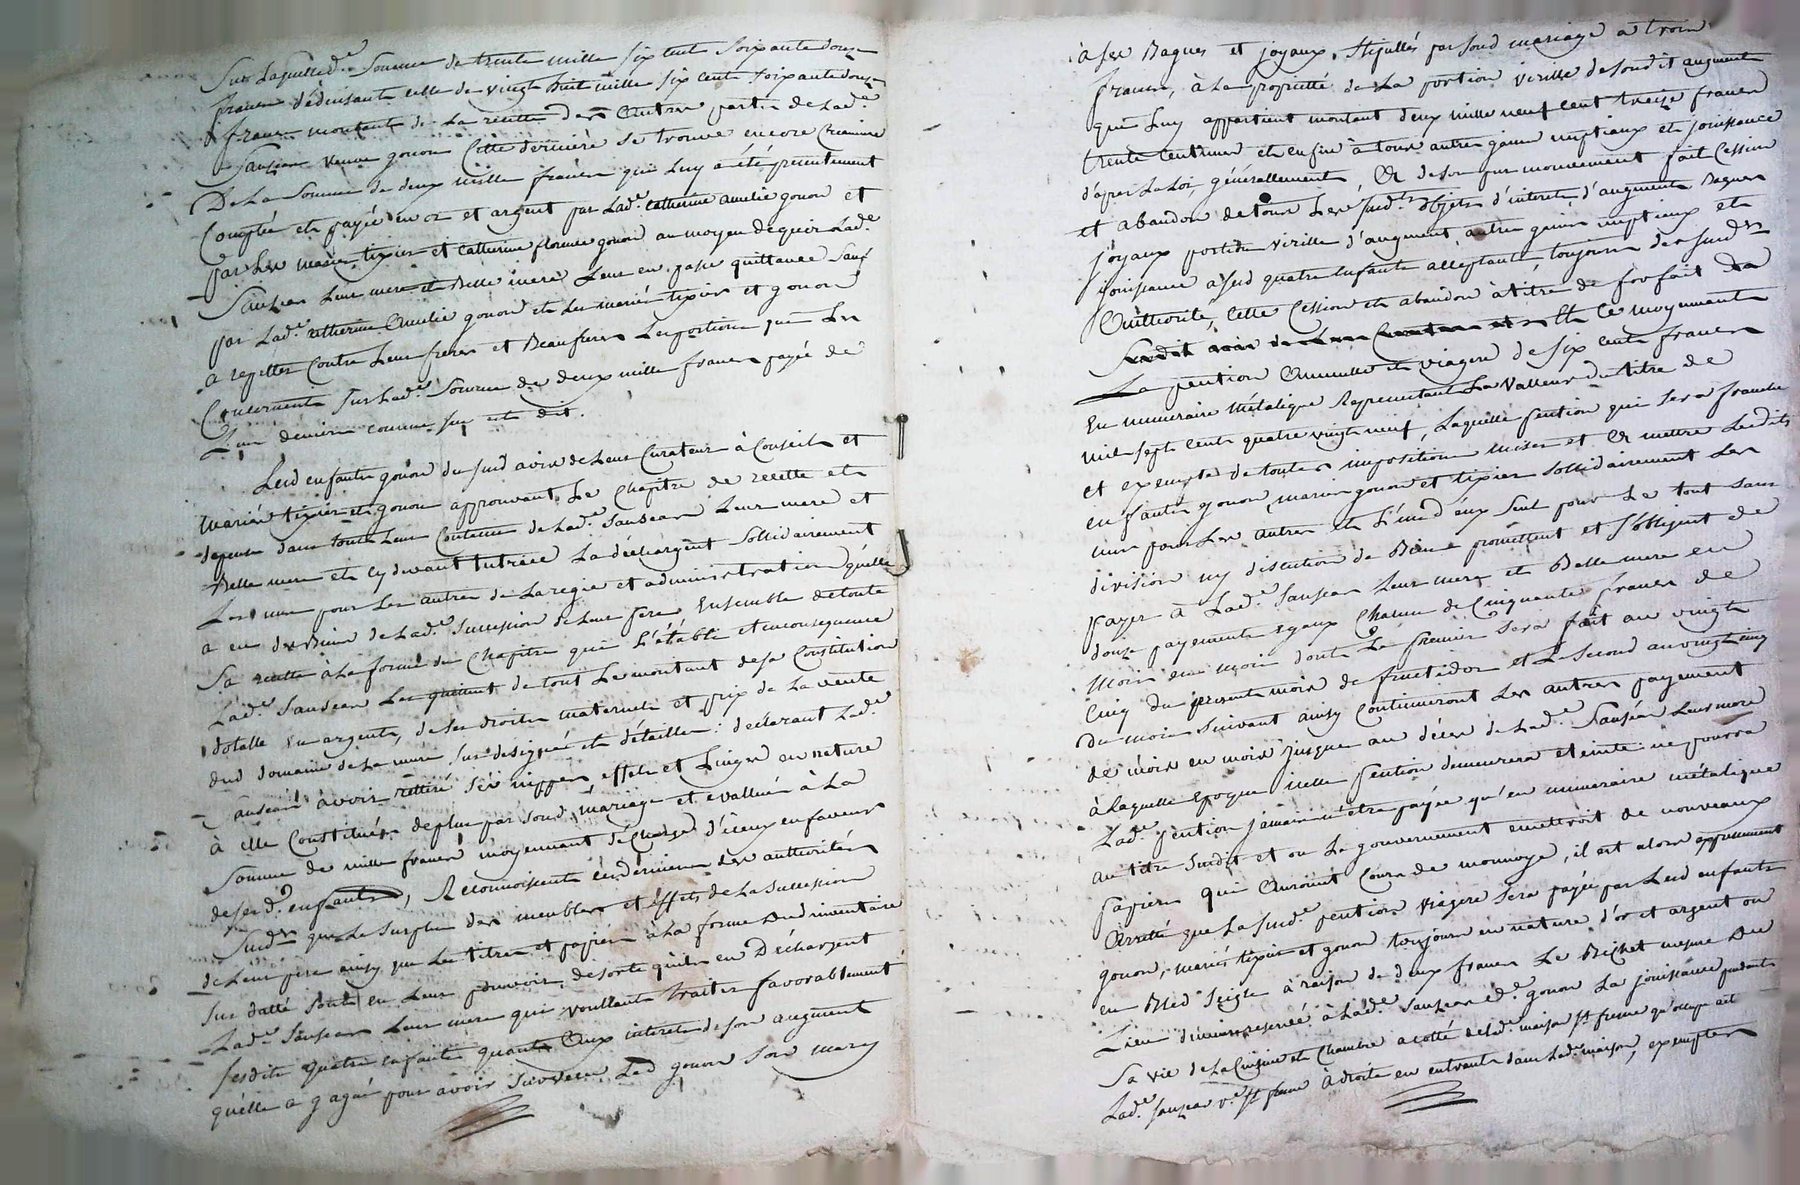 Sur laquelle d.e Somme de trente mille six cent soixante douze
francs déduisant celle de vingt huit mille six cents soixante douze
francs montant de la recette des Autres parts de Lad.e
Sauzeas veuve gonon Cette derniere se trouve encore Créanciere
De La Somme de deux mille francs qui Luy a été presentement
Comptée et payée en or et argent par Lad.e Catherine amelie gonon et
par Les mariés tixier et Catherine florence gonon au moyen de quoi Lad.e
Sauzeas Leur mere et Belle mere Leur en passe quittance Sauf
par Lad.e Catherine Amelie gonon et Les mariés tixier et gonon
a repetter Contre Leurs freres et Beaufreres Les portions qui Les
Concernent sur Lad.e Somme de deux mille francs payée de
Leurs deniers comme sus est dit.
Lesd enfants gonon du susd avis de Leur Curateur à Conseil et
mariés tixier et gonon approuvant Le Chapitre de recette et
depense dans tout Leur Contenu de Lad.e Sauzeas Leur mere et
Belle mere et cy devant tutrice La déchargent sollidairement
Les uns pour Les autres de La regie et administration qu'elle
a eu des Biens de Lad.e Succession de Leur pere Ensemble de toute
Sa recette à La forme du Chapitre qui L'établi et en consequence
Lad.e Sauzeas Les quitte de tout Le montant de sa Constitution
dotalle en argent, de ses droits maternels et prix de La vente
dud domaine de La mure sus designé et détaillé: declarant Lad.e
Sauzeas avoir rettiré ses nippes effets et Linges en nature
à elle Constitués de plus par Sond mariage et evallués à La
Somme de mille francs moyennant décharge d'iceux en faveur
de sesd. enfants, Reconnoissent ces derniers des authorités
Susd.es que Le Surplus des meubles et éffets de La Succession
de Leur pere ainsy que Les titres et papiers à La forme dud inventaire
sus datté sont en Leur pouvoir, de sorte qu'ils en Déchargent
Lad.e Sauzeas Leur mere qui voullant traiter favorablement
sesdits quatre enfants quant Aux interets de son augment
qu'elle a gagné pour avoir Survécu Led gonon Son mary
à ses Bagues et joyaux, Stipullés par Sond mariage a trois
francs, à La propriété de La portion virille de Sondit augment
qui Luy appartient montant deux mille neuf cent treize francs
trente Centimes et enfin à tous autres gains nuptiaux et jouissance
d'après La Loi, généralement, et de son pur mouvement fait Cession
et abandon de tous Les susd.es objets d'interets d'augment Bagues
joyaux portion virille d'augment, autres gains nuptiaux et
jouissance à sesd quatre Enfants acceptants toujours des susd.es
Authorités, Cette Cession et abandon à titre de forfait
Et Ce moyennant
La pention Annuelle et viagere de six cents francs
En numeraire métalique Representant La Valleur du titre de
mil sept cent quatre vingt neuf, Laquelle pention qui sera franche
et exempte de toutes impositions mises et à mettre Lesdits
enfants gonon mariés gonon et tixier sollidairement Les
uns pour Les autres et L'un d'eux seul pour Le tout sans
division ny discution de Biens promettent et s'obligent de
payer à Lad.e Sauzeas Leur mere et Belle mere en
douze payements egaux Chacun de Cinquante francs de
mois en mois dont Le premier sera fait au vingt
Cinq du present mois de fructidor et Le Second au vingt cinq
du mois suivant ainsy Continueront Les autres payement
de mois en mois jusque au décès de Lad.e Sauzeas Leur mere
à Laquelle Epoque icelle pention demeurera eteinte ne pourra
Lad.e pention jamais etre payée qu'en numeraire métalique
au titre Susdit et ou Le gouvernement emettroit de nouveaux
papiers qui Auroient Cours de monnoye, il est alors expressement
Arretté que La Susd.e pention viagere sera payée par Lesd enfants
gonon, mariés tixier et gonon toujours en nature d'or et argent ou
en Bled Seigle à raison de deux francs Le Bichet mesure du
Lieu reservée à Lad.e Sauzeas v.e gonon La jouissance pendant
Sa vie de La Cuisine et Chambre a cotté de Lad.e maison qu'occupe
Lad.e Sauzeas à droite en entrant dans Lad.e maison, exempte